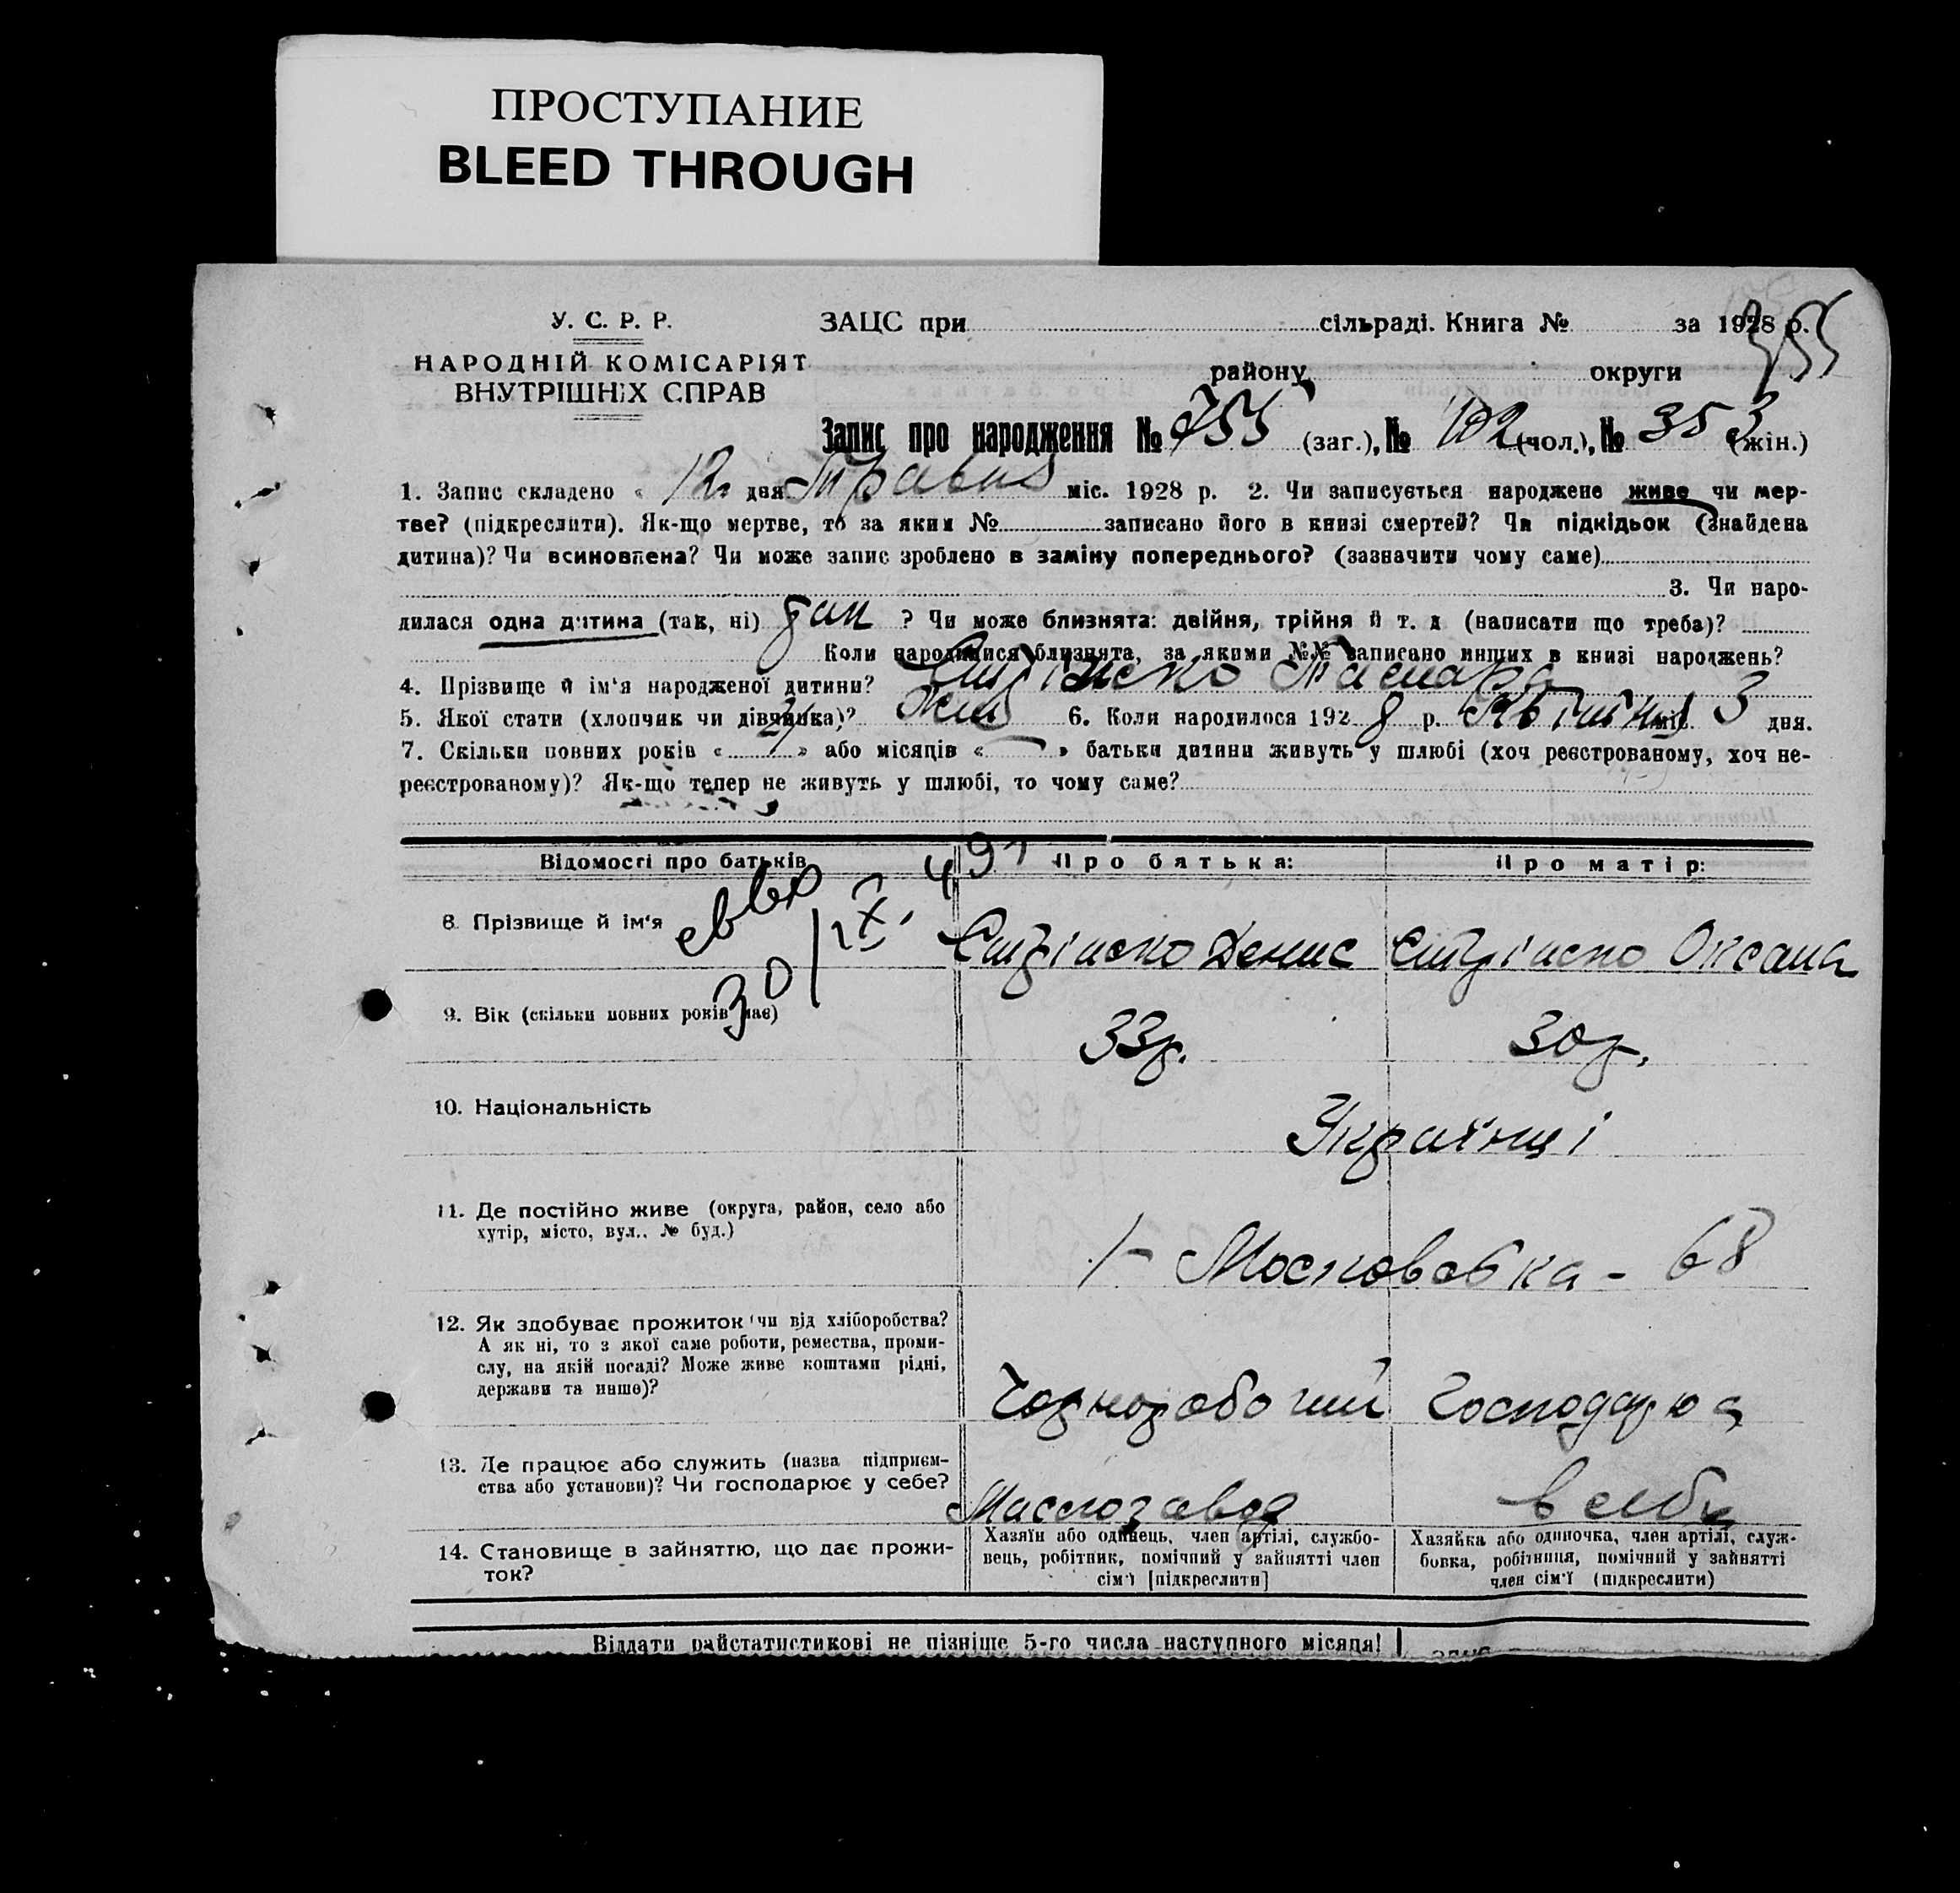 ПРОСТУПАНИЕ
BLEED THROUGH
355
У. С. Р. Р.
НАРОДНІЙ КОМІСАРІЯТ
ВНУТРІШНІХ СПРАВ
ЗАЦС при сільраді. Книга № за 1928 р.
району округи
Запис про народження № 755 (заг.), № (чол.), № 353 (жін.)
1. Запис складено « 12 дня Травня міс. 1928 р. 2. Чи записується народжене живе чи мер-
тве? (підкреслити). Як-що мертве, то за яким № записано його в книзі смертей? Чи підкідьок (знайдена
дитина)? Чи всиновлена? Чи може запис зроблено в заміну попереднього? (зазначити чому саме)
3. Чи наро-
дилася одна дитина (так, ні) ? Чи може близнята: двійня, трійня й т. д (написати що треба)?
Коли народилися близнята, за якими №№ записано инших в книзі народжень?
4. Прізвище й ім'я народженої дитини? Тамара
5. Якої стати (хлопчик чи дівчинка)? Жін 6. Коли народилося 1928 р. Квітня міс. 3 дня.
7. Скільки повних років « » або місяців « » батьки дитини живуть у шлюбі (хоч реєстрованому, хоч не-
реєстрованому)? Як-що тепер не живуть у шлюбі, то чому саме?
Відомості про батьків Про батька: Про матір:
30/IX. 49
8. Прізвище й ім'я Денис Оксана
9. Вік (скільки повних років має) 33р. 30р.
10. Національність Українці
11. Де постійно живе (округа, район, село або
хутір, місто, вул.. № буд.)
1 - Московська - 68
12. Як здобуває прожиток (чи від хліборобства?
А як ні, то з якої саме роботи, ремества, проми-
слу, на якій посаді? Може живе коштами рідні,
держави та инше)?
Чорноробочий Господарює
13. Де працює або служить (назва підприєм-
ства або установи)? Чи господарює у себе?
Маслозавод в себе
14. Становище в зайняттю, що дає прожи-
ток?
Хазяїн або одинець, член артілі, службо-
вець, робітник, помічний у зайнятті член
сім'ї [підкреслити]
Хазяйка або одиночка, член артілі, служ-
бовка, робітниця, помічний у зайнятті
член сім'ї (підкреслити)
Віддати райстатистикові не пізніше 5-го числа наступного місяця!